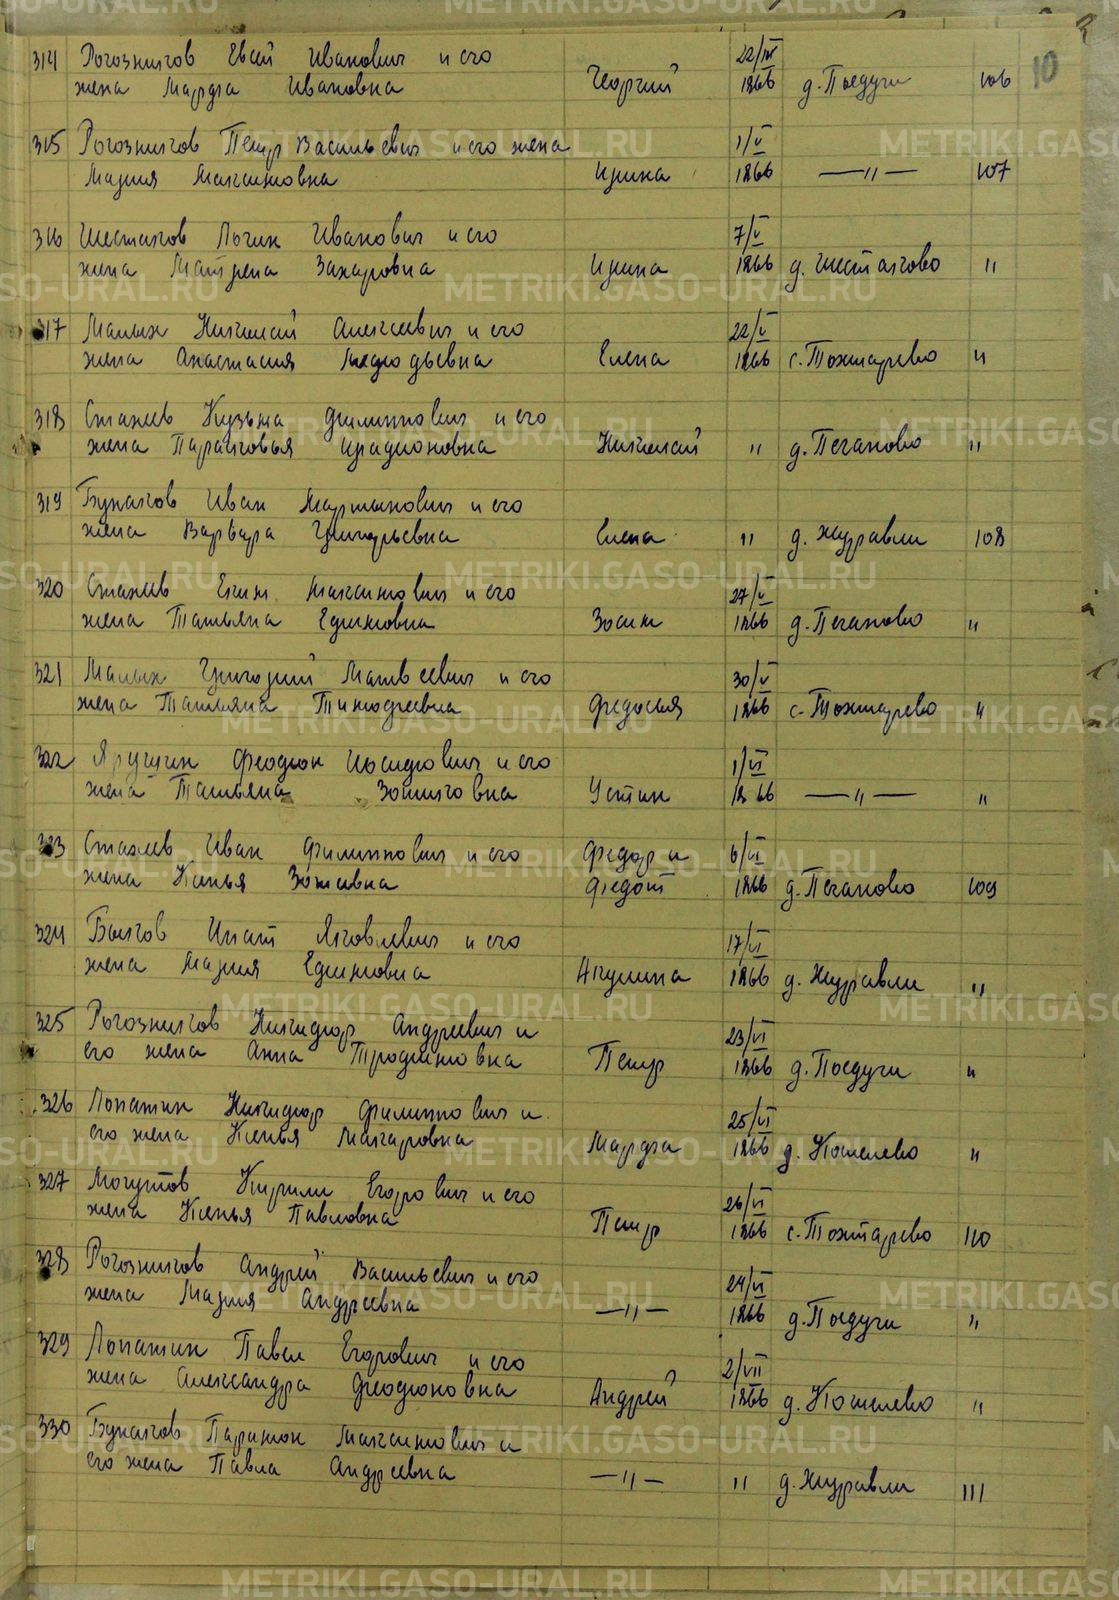 10
314 Рогозников Евсей Иванович и его 22/IV
жена Марфа Ивановна Георгий 1866 д. Поедуги 106
315 Рогозников Петр Васильевич и его жена 1/V
Мария Максимовна Ирина 1866 —"— 107
316 Шестаков Логин Иванович и его 7/V
жена Матрена Захаровна Ирина 1866 д. Шестаково "
317 Малых Николай Алексеевич и его 22/V
жена Анастасия Мефодьевна Елена 1866 с. Тохтарево "
318 Стахеев Кузьма Филиппович и его
жена Парасковья Иродионовна Николай " д. Пеганово "
319 Бунаков Иван Мартынович и его
жена Варвара Григорьевна Елена " д. Журавли 108
320 Стахеев Еким Максимович и его 27/V
жена Татьяна Ефимовна Зосим 1866 д. Пеганово "
321 Малых Григорий Матвеевич и его 30/V
жена Татьяна Тимофеевна Федосья 1866 с. Тохтарево "
322 Ярушин Феофон Иосифович и его 1/VI
жена Татьяна Устин 1866 —"— "
323 Стахеев Иван Филиппович и его Федор и 6/VI
жена Ксенья Федот 1866 д. Пеганово 109
324 Быков Ипат Яковлевич и его 17/VI
жена Мария Ефимовна Акулина 1866 д. Журавли "
325 Рогозников Никифор Андреевич и 23/VI
его жена Анна Трофимовна Петр 1866 д. Поедуги "
326 Лопатин Никифор Филиппович и 25/VI
его жена Ксенья Макаровна Марфа 1866 д. Кошелево "
327 Могутов Кирилл Егорович и его 26/VI
жена Ксенья Павловна Петр 1866 с. Тохтарево 110
328 Рогозников Андрей Васильевич и его 24/VI
жена Мария Андреевна —"— 1866 д. Поедуги "
329 Лопатин Павел Егорович и его 2/VII
жена Александра Феофоновна Андрей 1866 д. Кошелево "
330 Бунаков Парамон Максимович и
его жена Павла Андреевна —"— " д. Журавли 111
METRIKI.GASO-URAL.RU